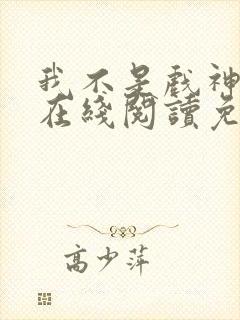 我不是戲神
在綫閱讀免
高少萍